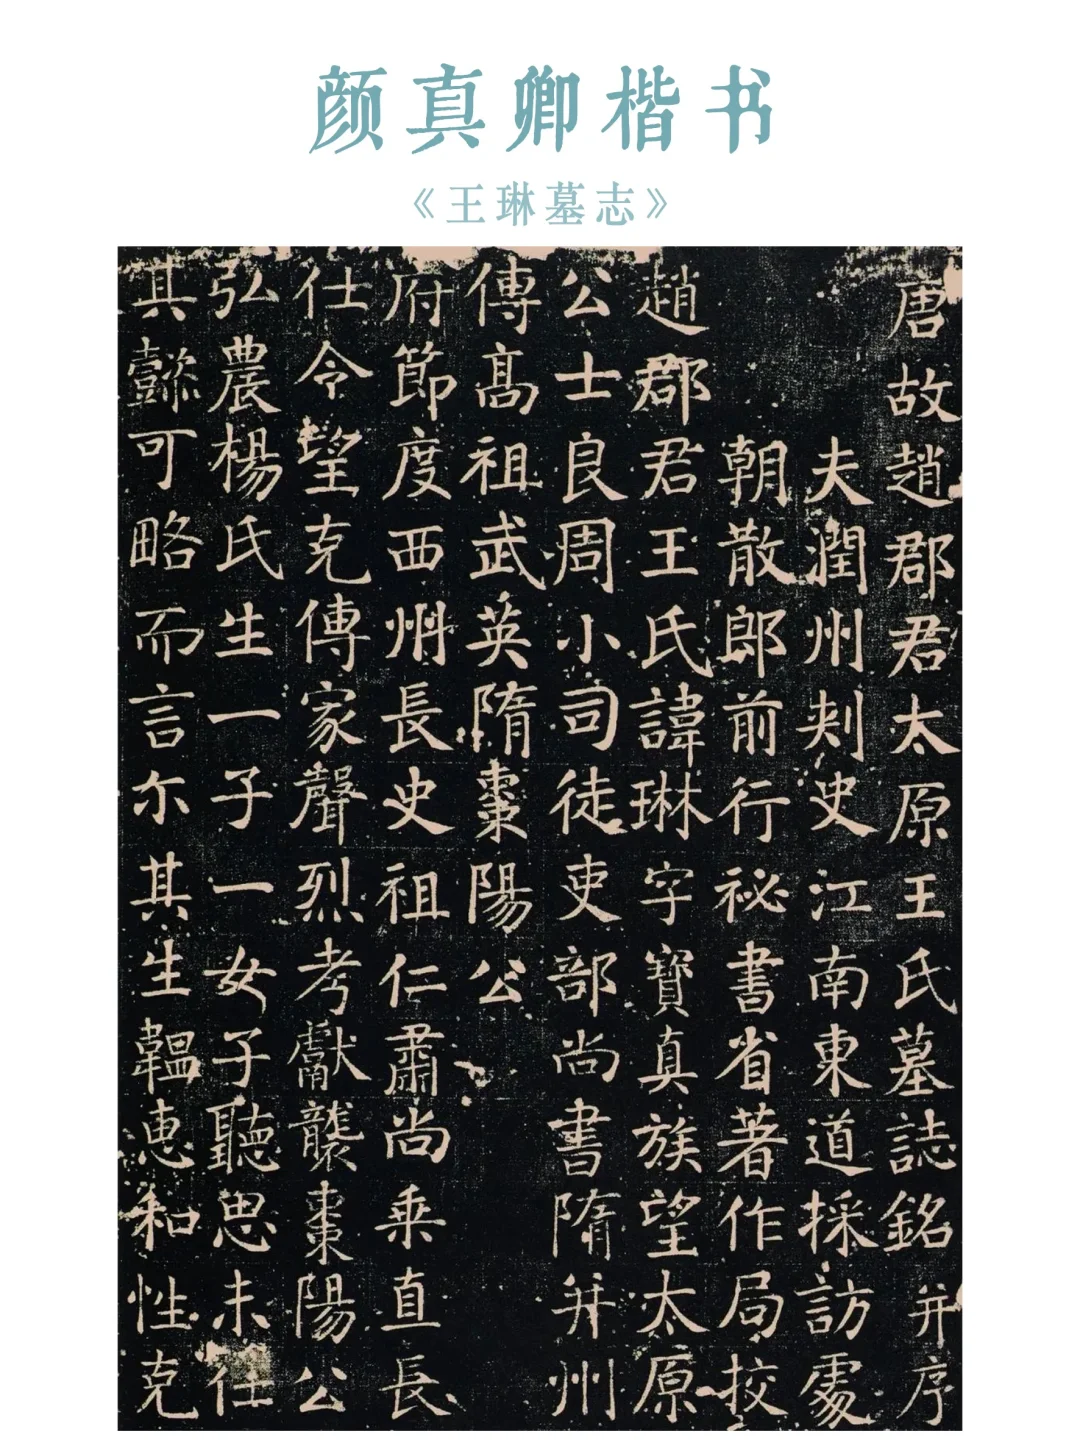 颜真卿楷书
《王琳墓志》
唐故趙郡君太原王氏墓誌銘并序
夫潤州刾史江南東道採訪處
朝散郎前行祕書省著作局挍
趙郡君王氏諱琳字寶真族望太原
公士良周小司徒吏部尚書隋并州
傳髙祖武英隋棗陽公
府節度西州長史祖仁肅尚乗直長
仕令望克傳家聲烈考獻襲棗陽公
弘農楊氏生一子一女子聽思未仕
其懿可略而言尒其生韞惠和性克